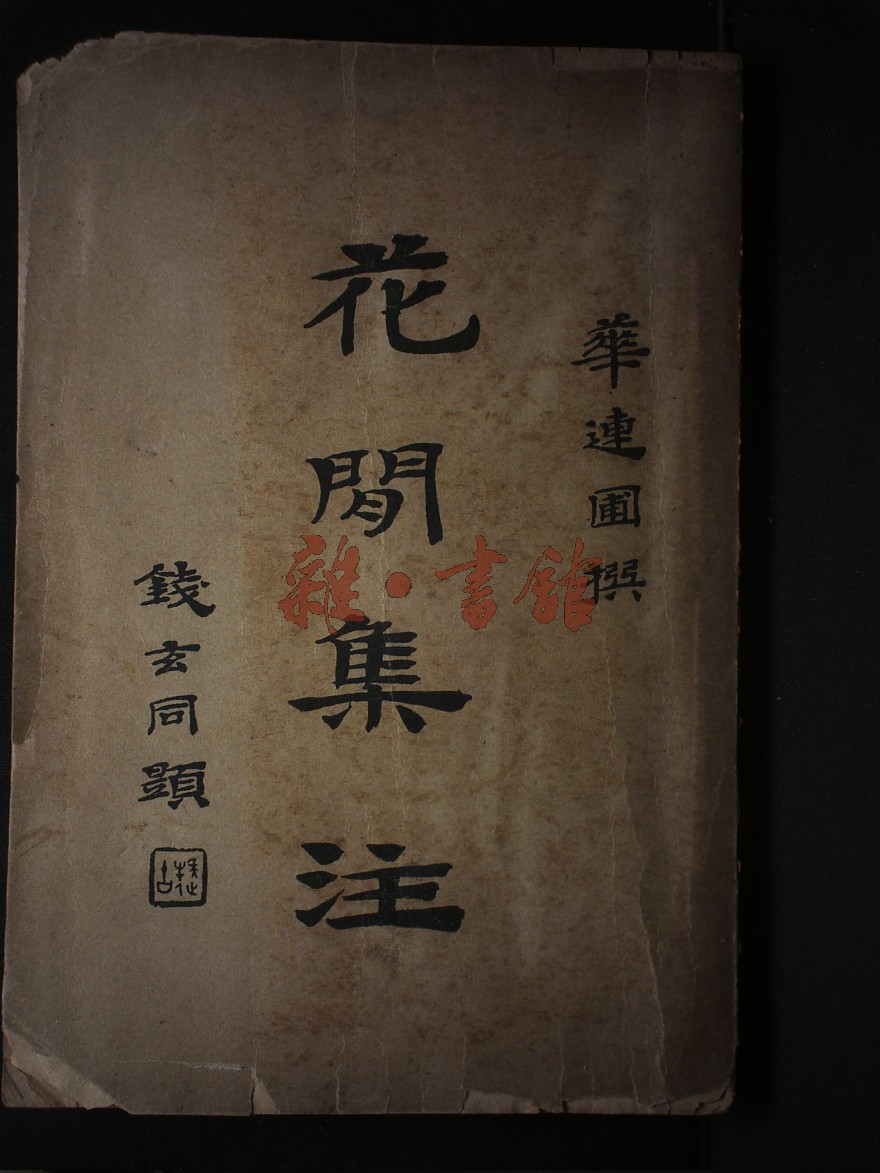 華連圃撰
花間集注
錢玄同題
雜·書館